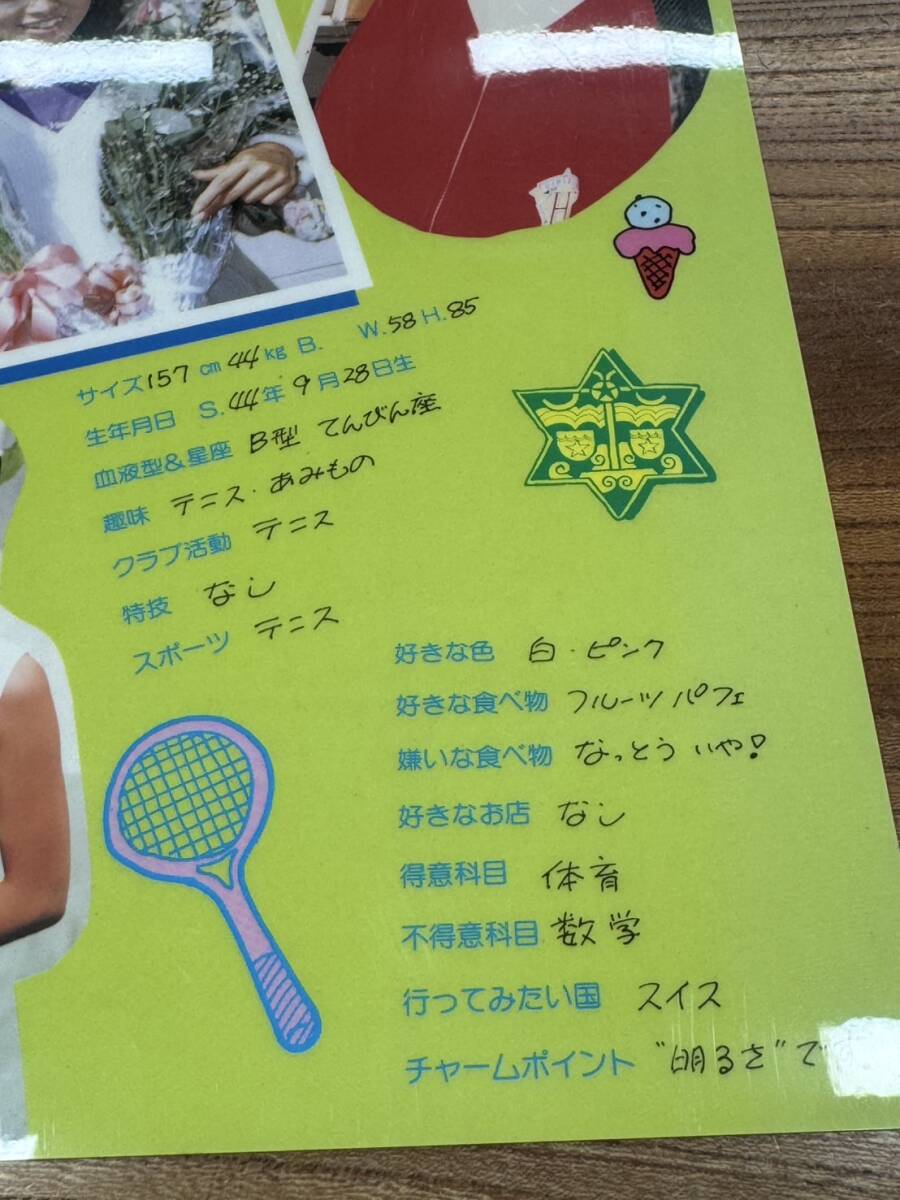 サイズ157cm 44kg B. W.58 H.85
生年月日 S.44年9月28日生
血液型&星座 B型 てんびん座
趣味 テニス・あみもの
クラブ活動 テニス
特技 なし
スポーツ テニス
好きな色 白・ピンク
好きな食べ物 フルーツパフェ
嫌いな食べ物 なっとう いや!
好きなお店 なし
得意科目 体育
不得意科目 数学
行ってみたい国 スイス
チャームポイント "明るさ"で